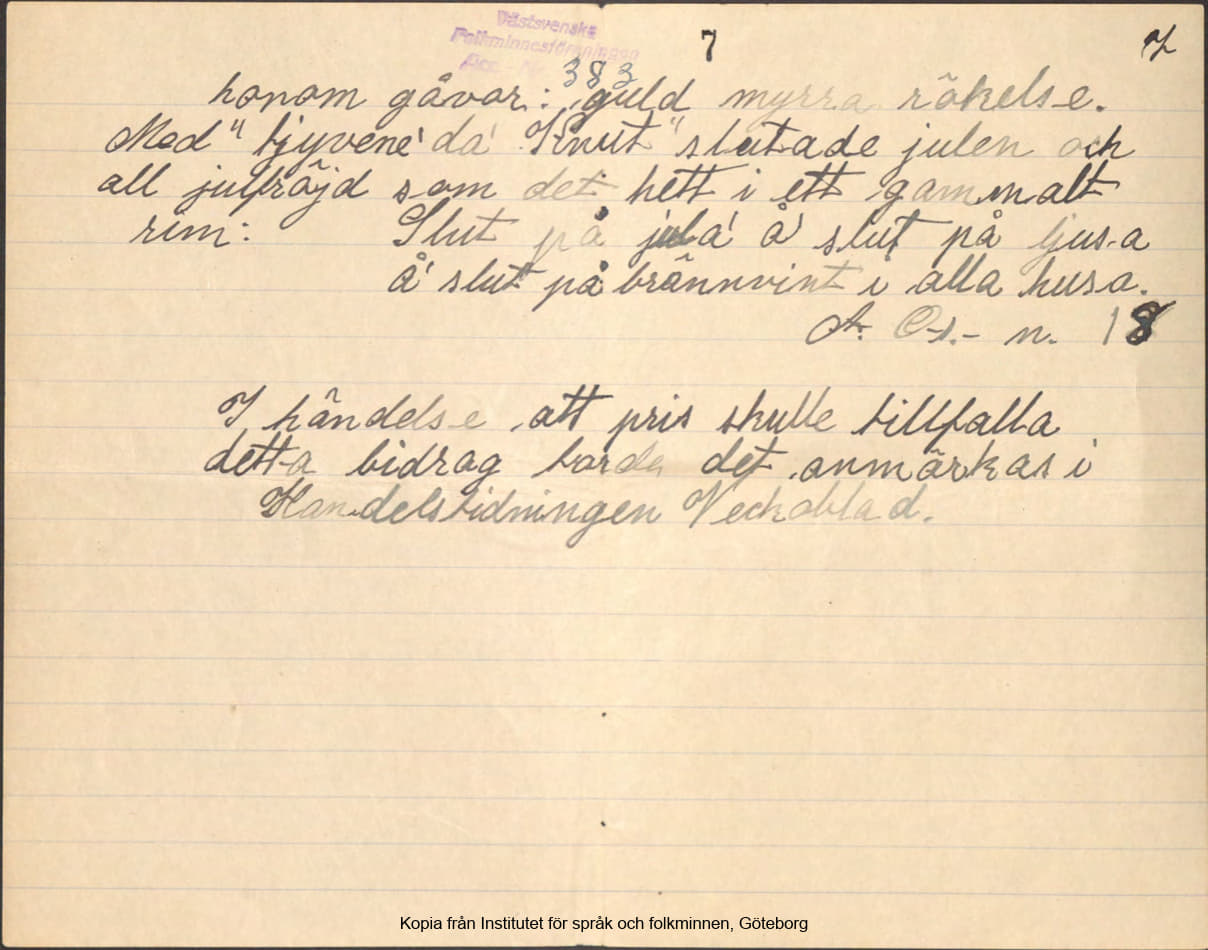 Västsvenska
Folkminnesföreningen
Acc. Nr. 383
7
7
honom gåvor: guld myrra rökelse.
Med "tjyvene' da' Knut" slutade julen och
all julfröjd som det hett i ett gammalt
rim: Slut på jula' å' slut på ljusa
å' slut på brännvint i alla husa.
A. O-s.- n. 18
I händelse att pris skulle tillfalla
detta bidrag torde det anmärkas i
Handelstidningen Veckoblad.
Kopia från Institutet för språk och folkminnen, Göteborg